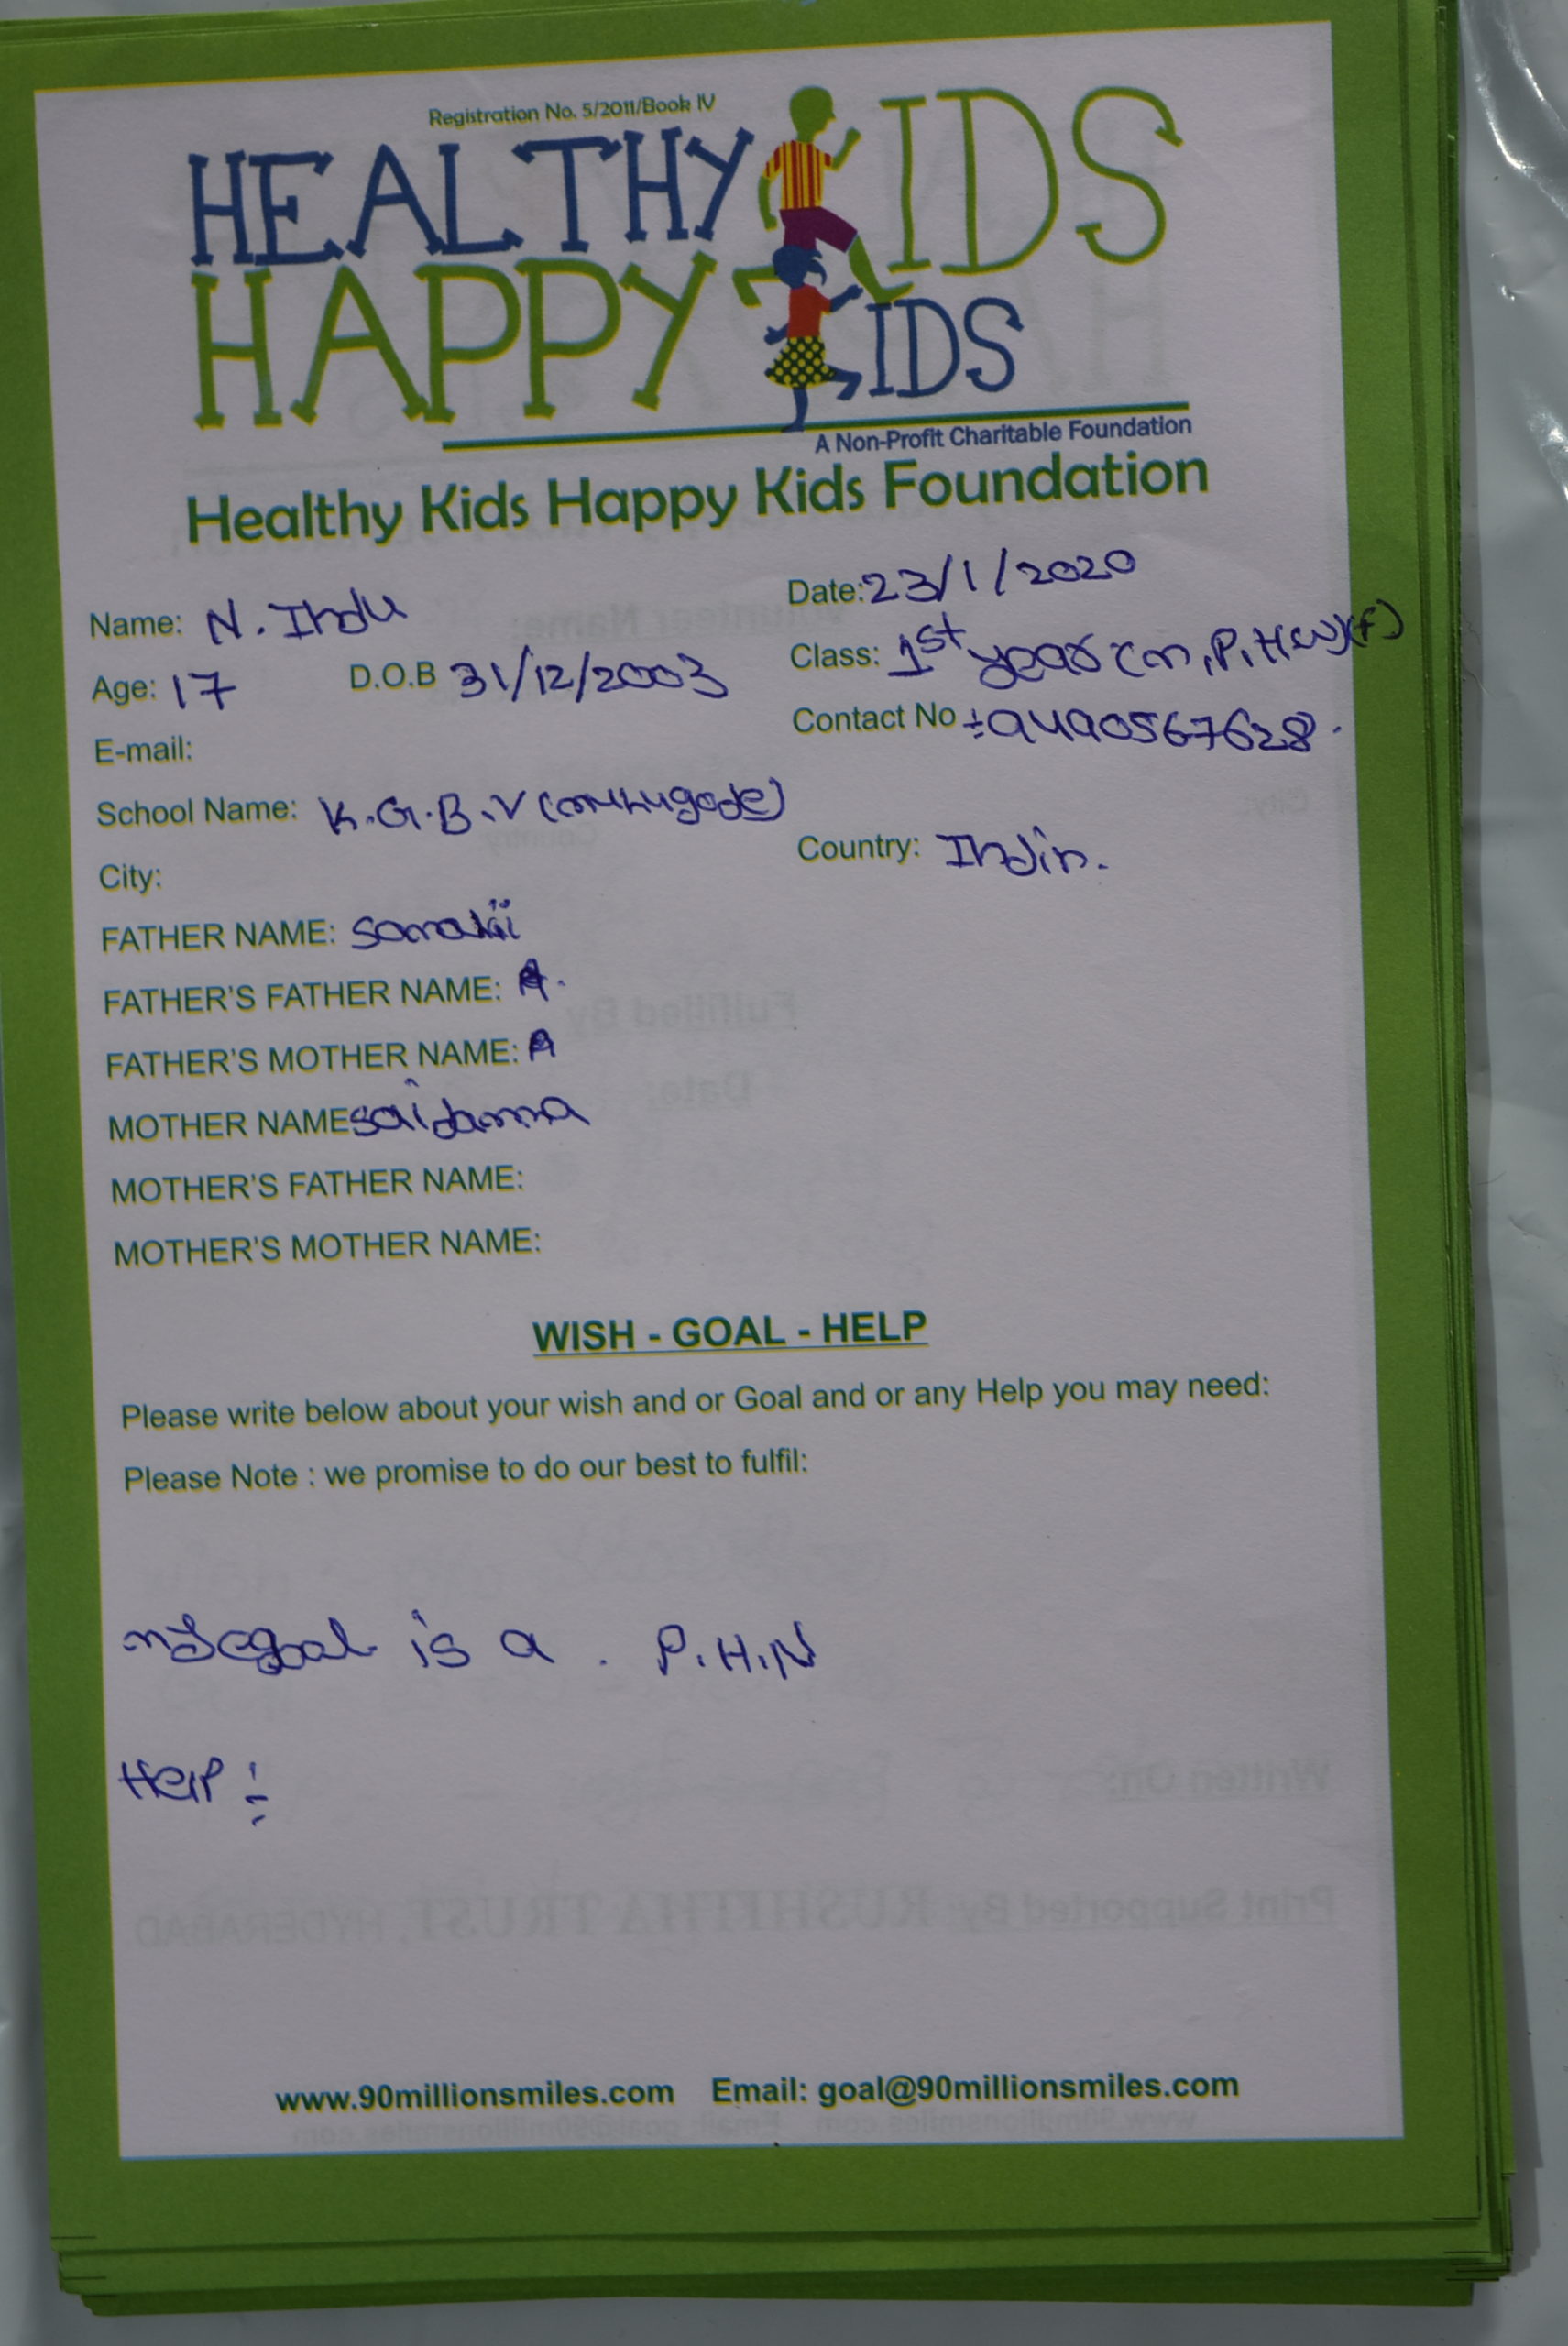 Registration No. 5/2011/Book IV
HEALTHY KIDS
HAPPY KIDS
A Non-Profit Charitable Foundation
Healthy Kids Happy Kids Foundation
Name: N. Indu
Date: 23/1/2020
Age: 17 D.O.B 31/12/2003
Class: 1st year (m,P,H(w)(F)
E-mail:
Contact No :- 9490567628.
School Name: K.G.B.V
City:
Country: India.
FATHER NAME:
FATHER'S FATHER NAME: A.
FATHER'S MOTHER NAME: A
MOTHER NAME saidamma
MOTHER'S FATHER NAME:
MOTHER'S MOTHER NAME:
WISH - GOAL - HELP
Please write below about your wish and or Goal and or any Help you may need:
Please Note : we promise to do our best to fulfil:
my goal is a . P.H.N
Help :-
www.90millionsmiles.com Email: goal@90millionsmiles.com